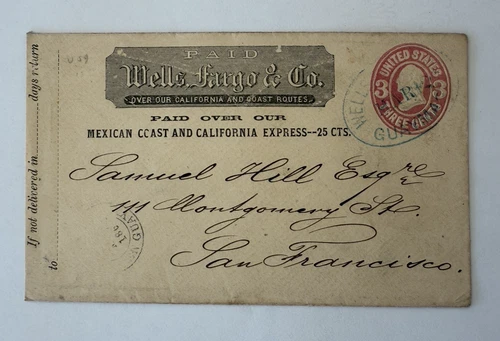 If not delivered in ____ days return
to
PAID
Wells, Fargo & Co.
OVER OUR CALIFORNIA AND COAST ROUTES.
PAID OVER OUR
MEXICAN COAST AND CALIFORNIA EXPRESS--25 CTS.
UNITED STATES
3 3
THREE CENTS
WELLS
GUA
Samuel Hill Esqre
111 Montgomery St.
San Francisco.
GUAY